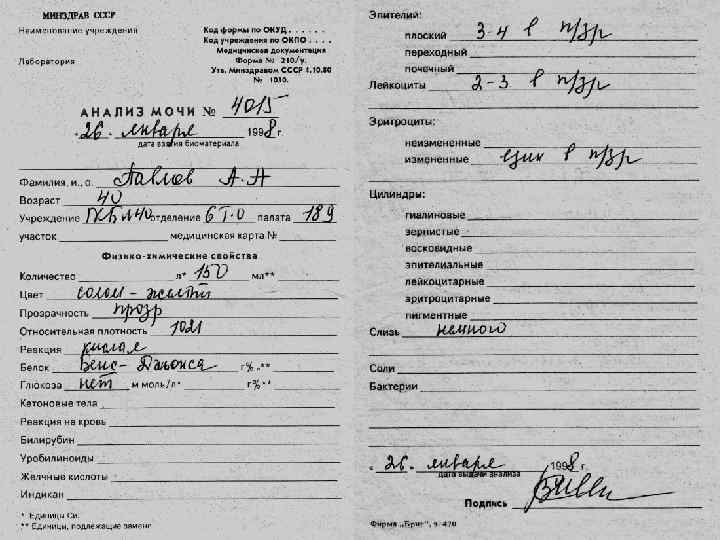 МИНЗДРАВ СССР
Наименование учреждения
Лаборатория
Код формы по ОКУД . . . . . .
Код учреждения по ОКПО . . . .
Медицинская документация
Форма № 210/у.
Утв. Минздравом СССР 4.10.80
№ 1030.
АНАЛИЗ МОЧИ № 4015
" 26 " января 1998 г.
дата взятия биоматериала
Фамилия, и., о. Павлов А.А
Возраст 40
Учреждение ГКБ №40 отделение 6 Т.О палата 189
участок медицинская карта №
Физико-химические свойства
Количество л* 150 мл**
Цвет солом - желтый
Прозрачность прозр
Относительная плотность 1021
Реакция кислая
Белок Бенс-Джонса г% **
Глюкоза нет м моль/л* г% **
Кетоновые тела
Реакция на кровь
Билирубин
Уробилиноиды
Желчные кислоты
Индикан
* Единицы Си.
** Единицы, подлежащие замене
Эпителий:
плоский 3-4 в п/зр
переходный
почечный
Лейкоциты 2-3 в п/зр
Эритроциты:
неизмененные
измененные един в п/зр
Цилиндры:
гиалиновые
зернистые
восковидные
эпителиальные
лейкоцитарные
эритроцитарные
пигментные
Слизь немного
Соли
Бактерии
" 26 " января 1998 г.
дата выдачи анализа
Подпись
Фирма „Бриг", з. 470